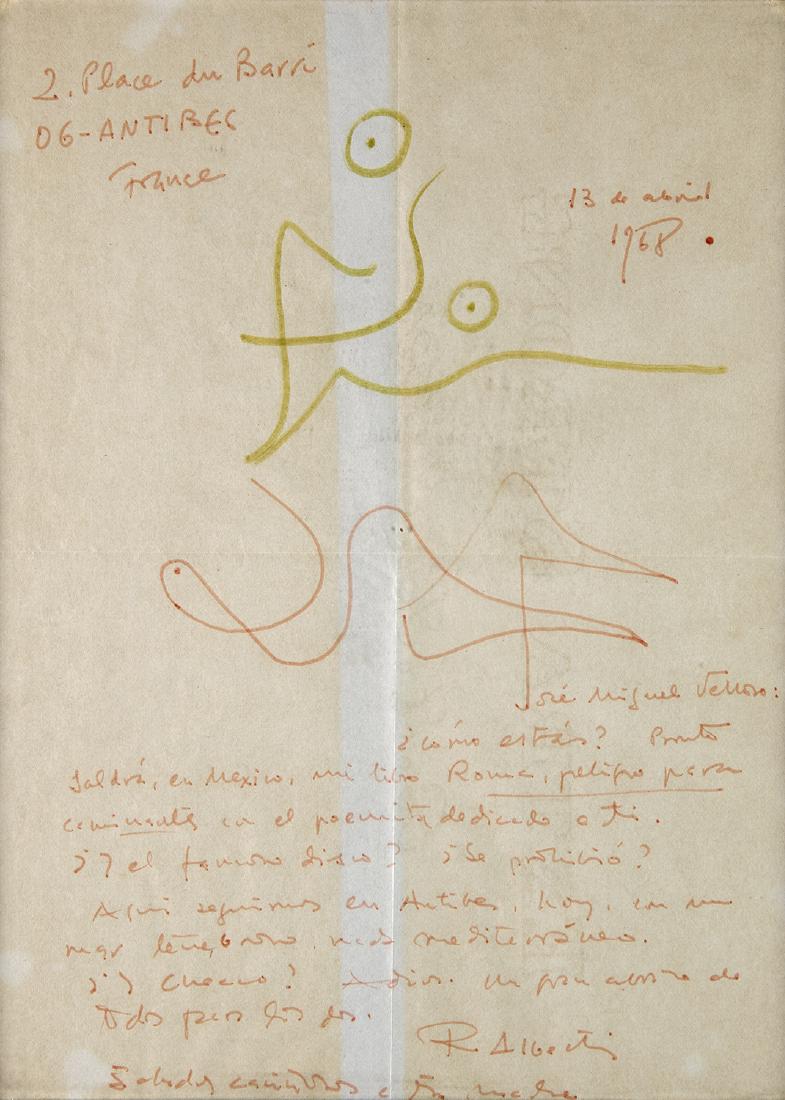 2. Place du Barri
06-ANTIBES
France
13 de abril
1968
José Miguel Velloso:
¿cómo estás? Pronto
saldrá, en México, mi libro Roma, peligro para
caminantes con el poemita dedicado a ti.
¿Y el famoso disco? ¿Se prohibió?
Aquí seguimos en Antibes, hoy, con un
mar tenebroso, nada mediterráneo.
¿Y Checco? Adios. Un gran abrazo de
todos para los dos.
R. Alberti
Saludos cariñosos a tu madre